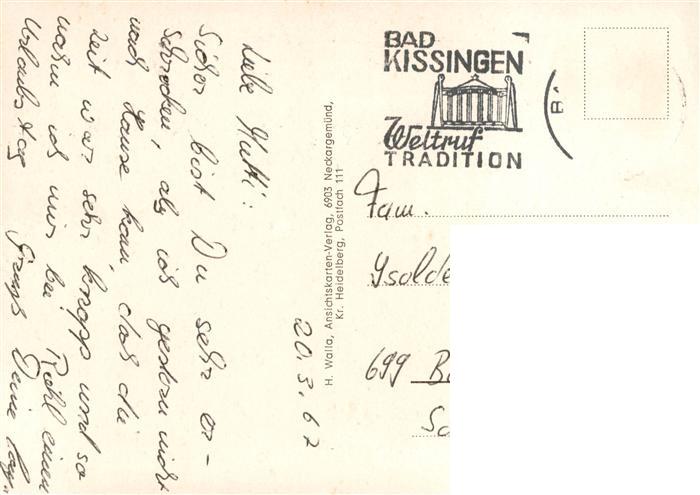 20.3.67
Liebe Mutti!
Sicher bist Du sehr er-
schrocken, als ich gestern nicht
nach Hause kam, doch die
Zeit war sehr knapp und so
nahm ich mir bei einen
Urlaubstag Deine
H. Walla, Ansichtskarten-Verlag, 6903 Neckargemünd,
Kr. Heidelberg, Postfach 111
BAD
KISSINGEN
Weltruf
TRADITION
B
Fam.
Ysolde
699 B